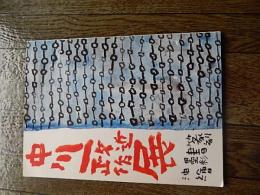 中川
一政
近作
展
篆刻
書
墨彩
油絵